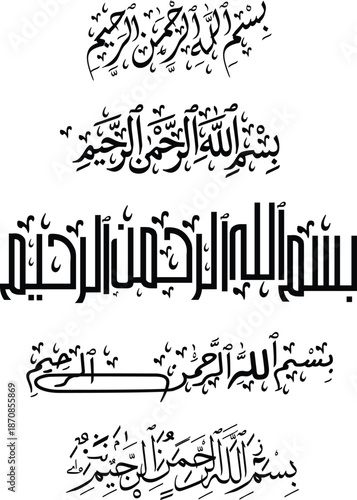 بِسْمِ اللَّهِ الرَّحْمَنِ الرَّحِيمِ
بِسْمِ اللَّهِ الرَّحْمَنِ الرَّحِيمِ
بسم الله الرحمن الرحيم
بِسْمِ اللَّهِ الرَّحْمَنِ الرَّحِيمِ
بِسْمِ اللَّهِ الرَّحْمَنِ الرَّحِيمِ
Adobe Stock | #1870855869